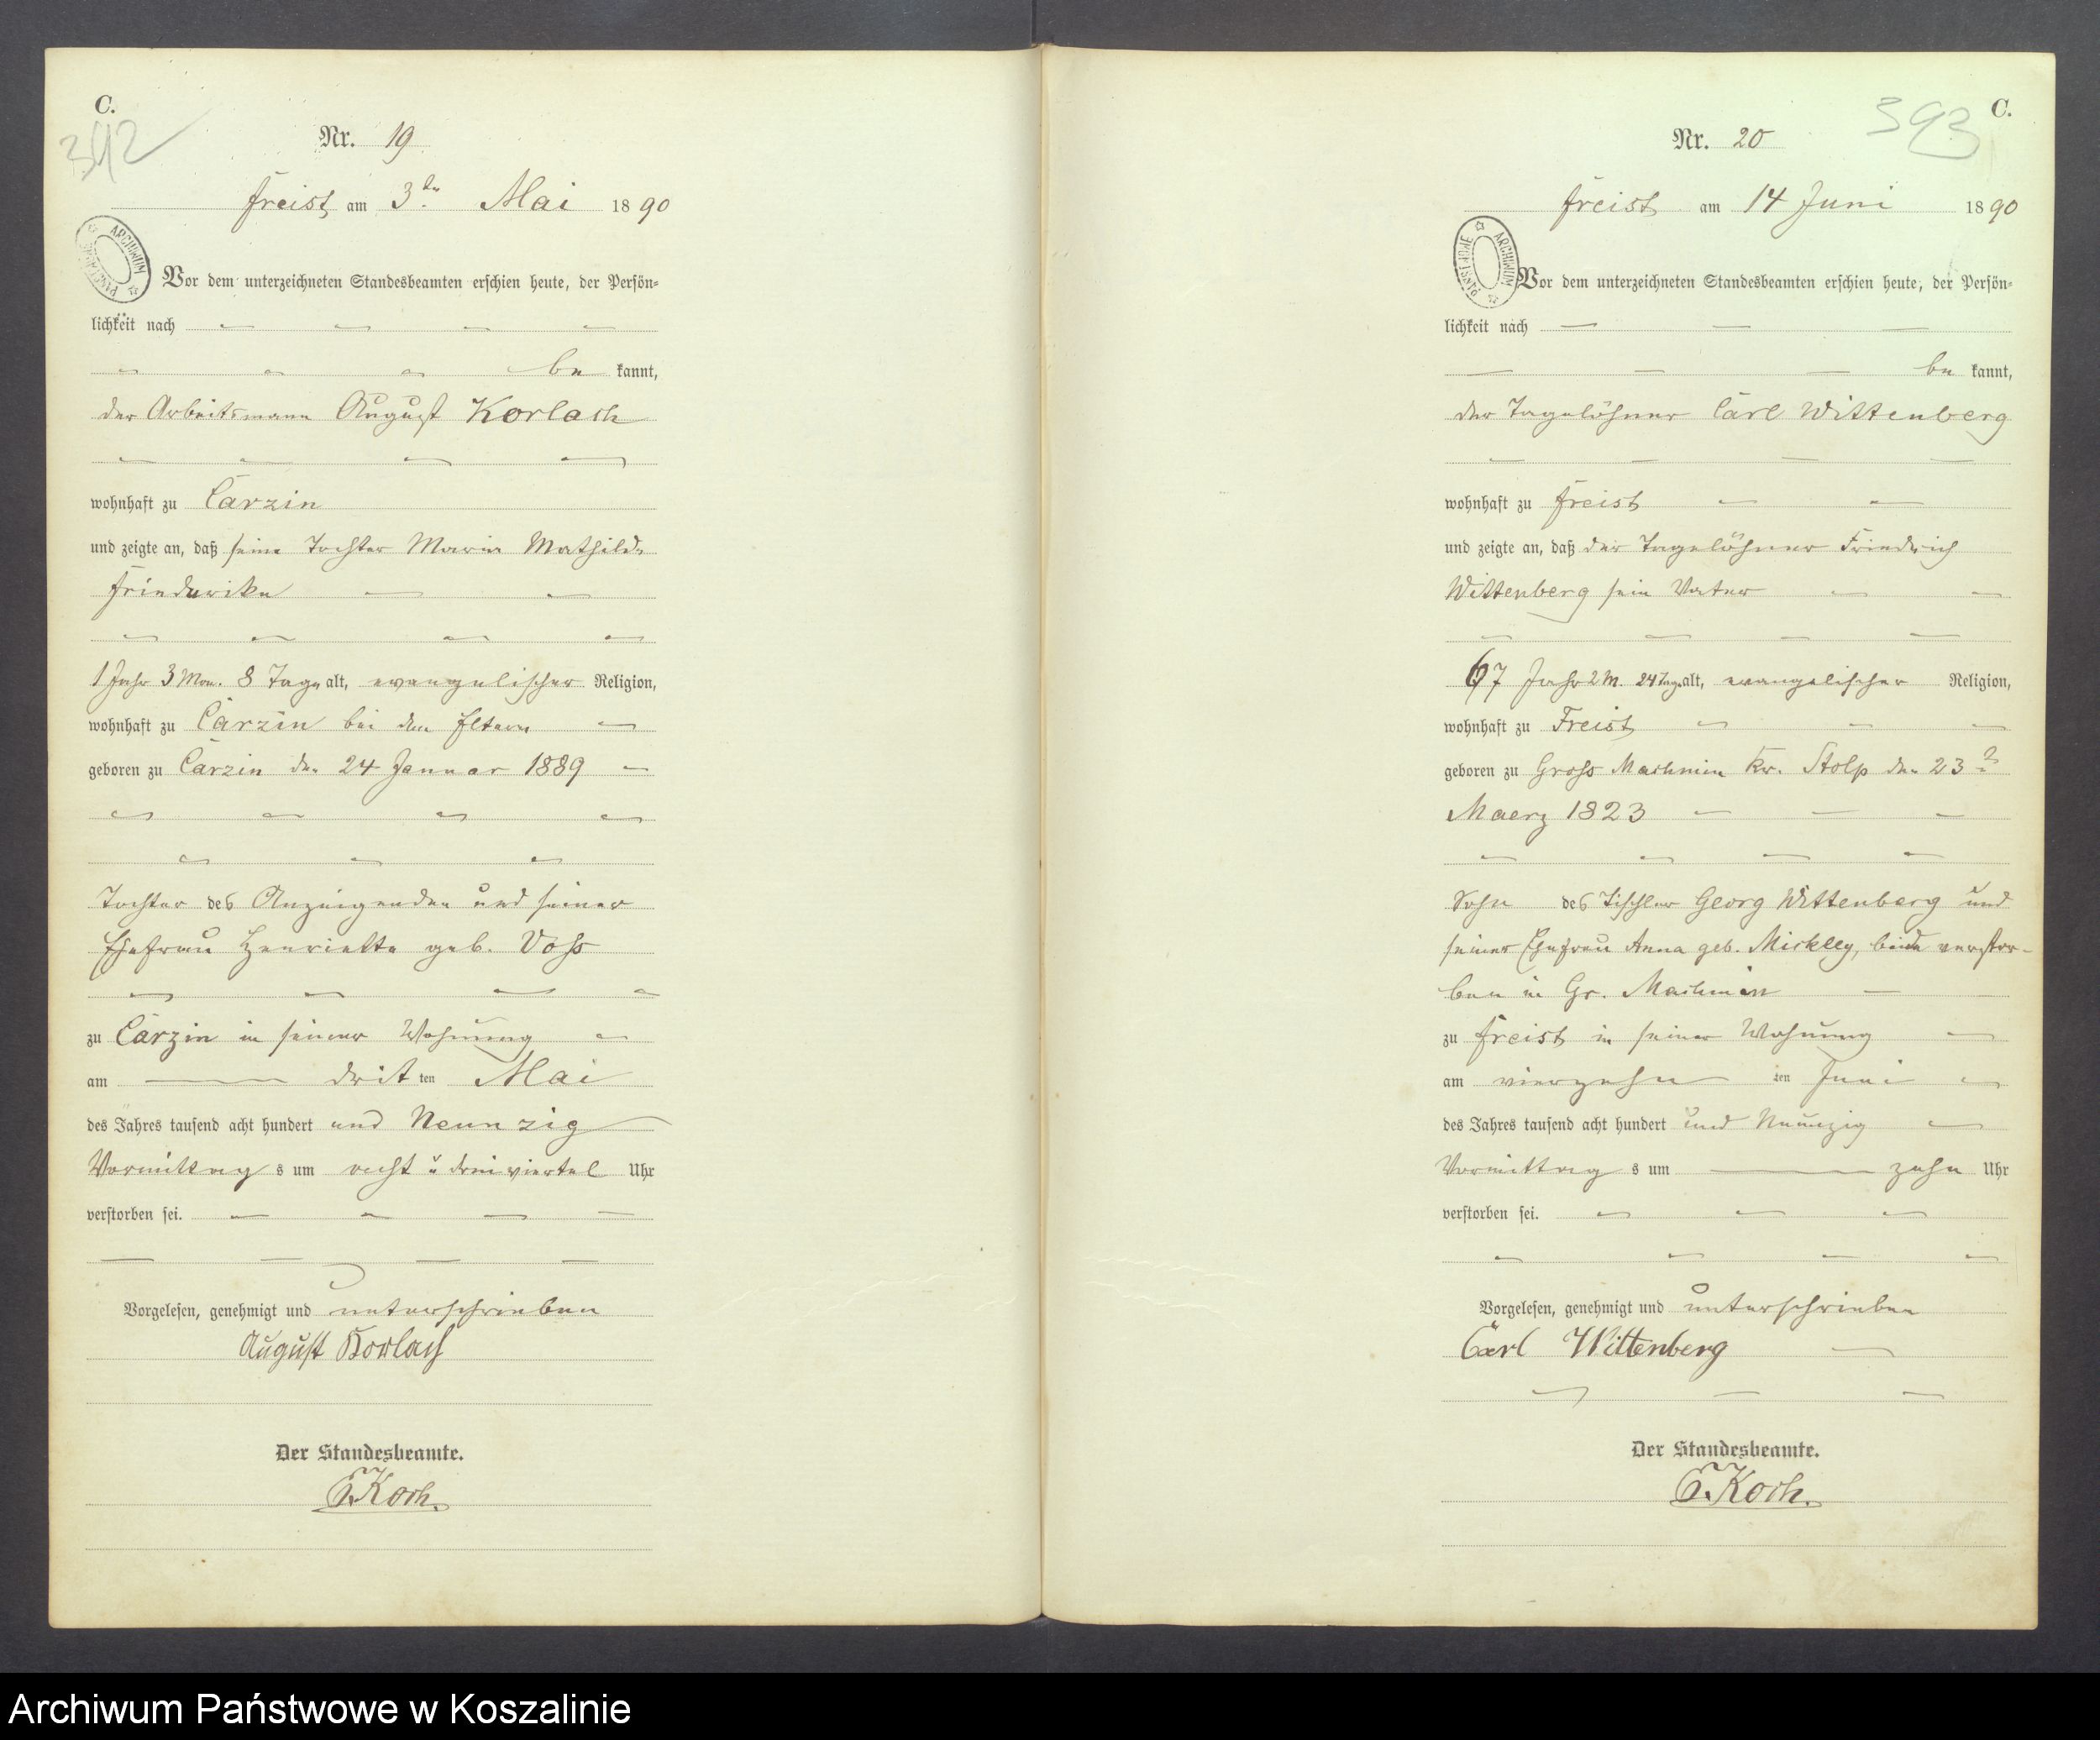 C.
342
Nr. 19
Freist am 3ten Mai 1890
ARCHIWUM PAŃSTWOWE
Vor dem unterzeichneten Standesbeamten erschien heute, der Persön-
lichkeit nach
be kannt,
der Arbeitsmann August Korlach
wohnhaft zu Carzin
und zeigte an, daß seine Tochter Maria Mathilde
Friederike
1 Jahr 3 Mon. 8 Tage alt, evangelischer Religion,
wohnhaft zu Carzin bei den Eltern
geboren zu Carzin den 24 Januar 1889
Tochter des Anzeigenden und seiner
Ehefrau Henriette geb. Voss
zu Carzin in seiner Wohnung
am dritten Mai
des Jahres tausend acht hundert und Neunzig
Vormittags um acht u dreiviertel Uhr
verstorben sei.
Vorgelesen, genehmigt und unterschrieben
August Korlach
Der Standesbeamte.
Koch.
C.
393
Nr. 20
Freist am 14 Juni 1890
ARCHIWUM PAŃSTWOWE
Vor dem unterzeichneten Standesbeamten erschien heute, der Persön-
lichkeit nach
be kannt,
der Tagelöhner Carl Wittenberg
wohnhaft zu Freist
und zeigte an, daß der Tagelöhner Friedrich
Wittenberg sein Vater
67 Jahr 2 M. 24 Tage alt, evangelischer Religion,
wohnhaft zu Freist
geboren zu Gross Machmin Kr. Stolp den 23
Maerz 1823
Sohn des Tischler Georg Wittenberg und
seiner Ehefrau Anna geb. Mickley, beide verstor-
ben in Gr. Machmin
zu Freist in seiner Wohnung
am vierzehn ten Juni
des Jahres tausend acht hundert und Neunzig
Vormittags um zehn Uhr
verstorben sei.
Vorgelesen, genehmigt und unterschrieben
Carl Wittenberg
Der Standesbeamte.
Koch.
Archiwum Państwowe w Koszalinie